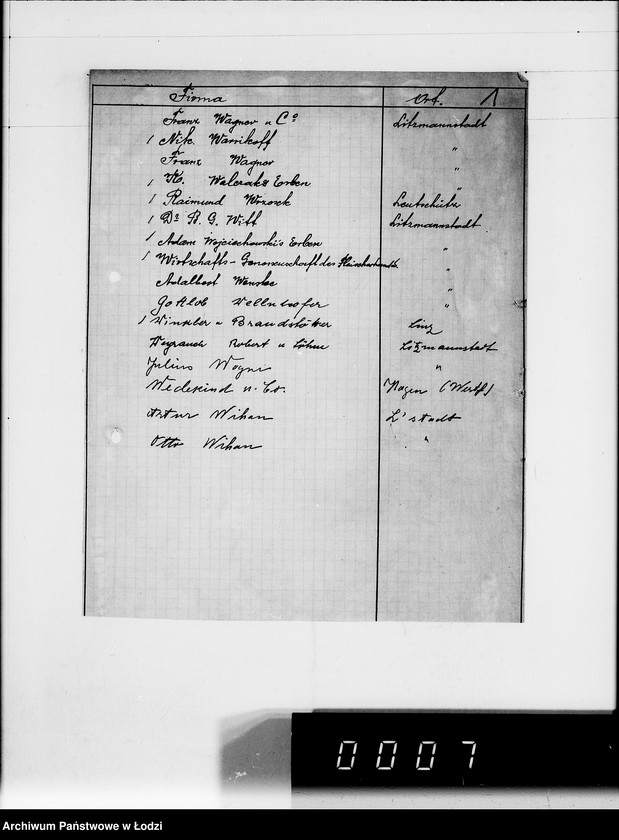 Firma Ort. 1
Franz Wagner u Co Litzmannstadt
1 Nik. Warrikoff "
Franz Wagner "
1 K. Walczaks Erben "
1 Raimund Wrzosek Leutschütz
1 Dr. B. G. Witt Litzmannstadt
1 Adam Wojciechowski's Erben "
1 Wirtschafts-Genossenschaft des "
Adalbert Wenske "
Gottlob Wellnhofer "
1 Winkler u Brandstätter Linz
Weyrauch Robert u Söhne Litzmannstadt
Julius Wagner "
Wedekind u. Co. Hagen (Westf)
Artur Wihan L'stadt
Otto Wihan "
0007
Archiwum Państwowe w Łodzi